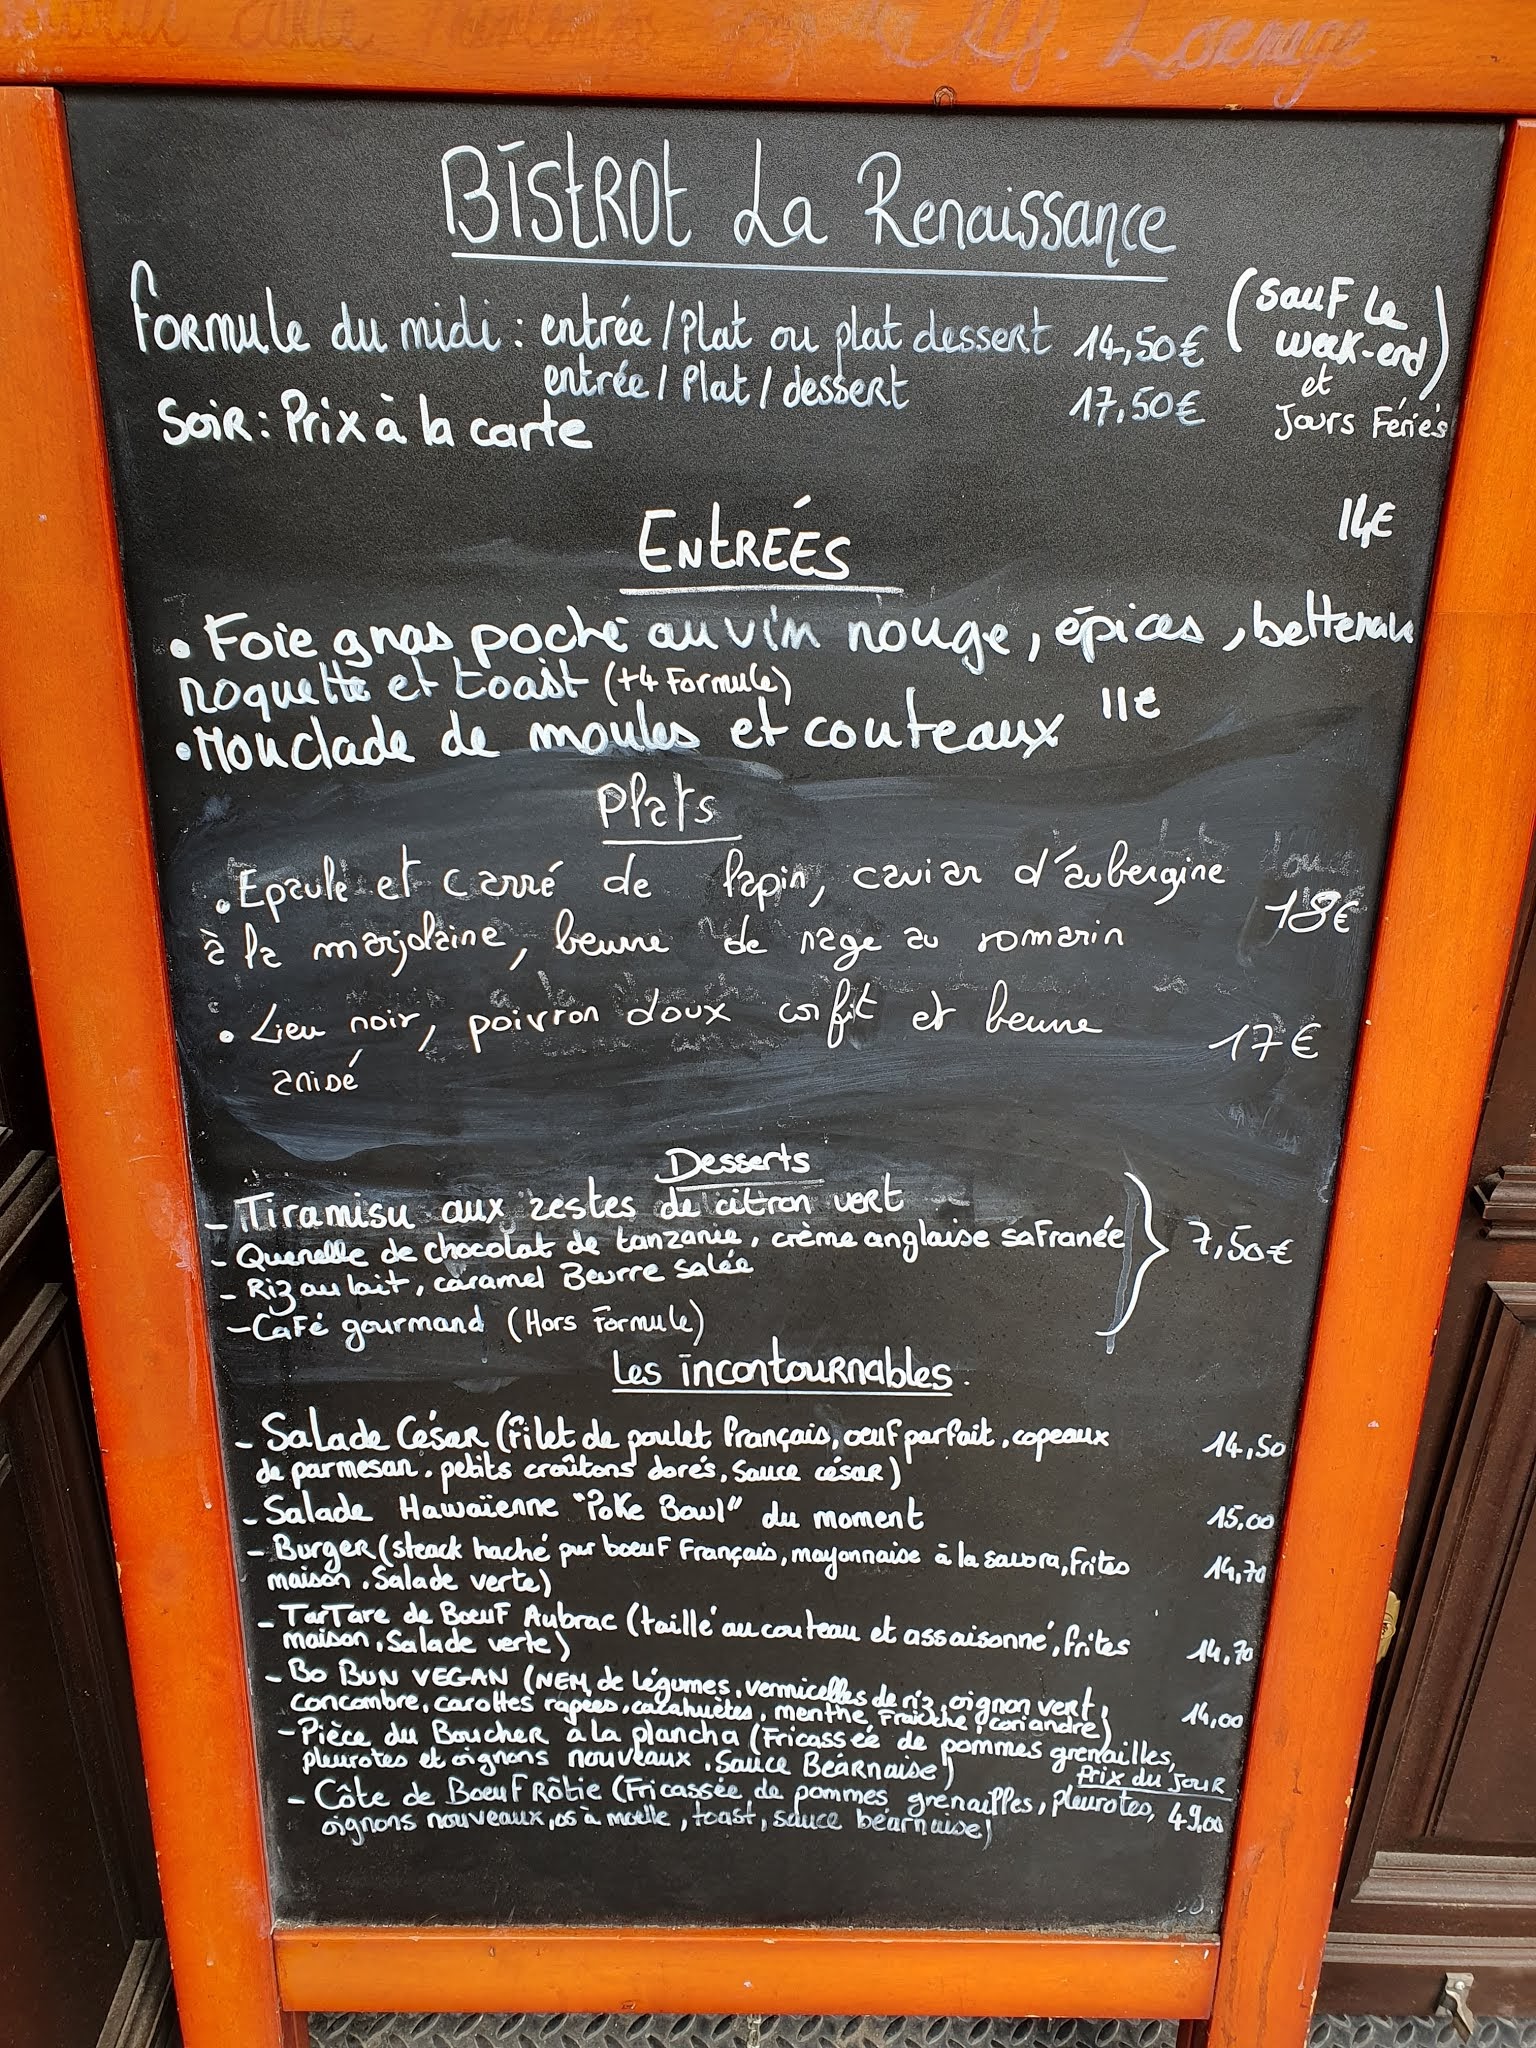 Bistrot La Renaissance
Formule du midi : entrée / Plat ou plat dessert 14,50€ (sauf le week-end)
entrée / Plat / dessert 17,50€ et Jours Fériés
Soir : Prix à la carte
Entrées 14€
• Foie gras poché au vin rouge, épices, betterave
roquette et toast (+4 Formule)
• Mouclade de moules et couteaux 11€
Plats
• Epaule et carré de lapin, caviar d'aubergine
à la marjolaine, beurre de nage au romarin 18€
• Lieu noir, poivron doux confit et beurre 17€
anisé
Desserts
- Tiramisu aux zestes de citron vert
- Quenelle de chocolat de tanzanie, crème anglaise safranée 7,50€
- Riz au lait, caramel Beurre salée
- Café gourmand (Hors Formule)
Les incontournables.
- Salade César (Filet de poulet français, oeuf parfait, copeaux 14,50
de parmesan, petits croûtons dorés, sauce césar)
- Salade Hawaïenne "Poke Bowl" du moment 15,00
- Burger (steack haché pur boeuf Français, mayonnaise à la savora, Frites 14,70
maison, Salade verte)
- TarTare de Boeuf Aubrac (taillé au couteau et assaisonné, frites 14,70
maison, Salade verte)
- Bo Bun VEGAN (NEM de légumes, vermicelles de riz, oignon vert,
concombre, carottes rapées, cacahuètes, menthe Fraîche, coriandre) 14,00
- Pièce du Boucher à la plancha (Fricassée de pommes grenailles,
pleurotes et oignons nouveaux, Sauce Béarnaise) Prix du jour
- Côte de Boeuf Rôtie (Fricassée de pommes grenailles, pleurotes, 49,00
oignons nouveaux, os à moelle, toast, sauce béarnaise)